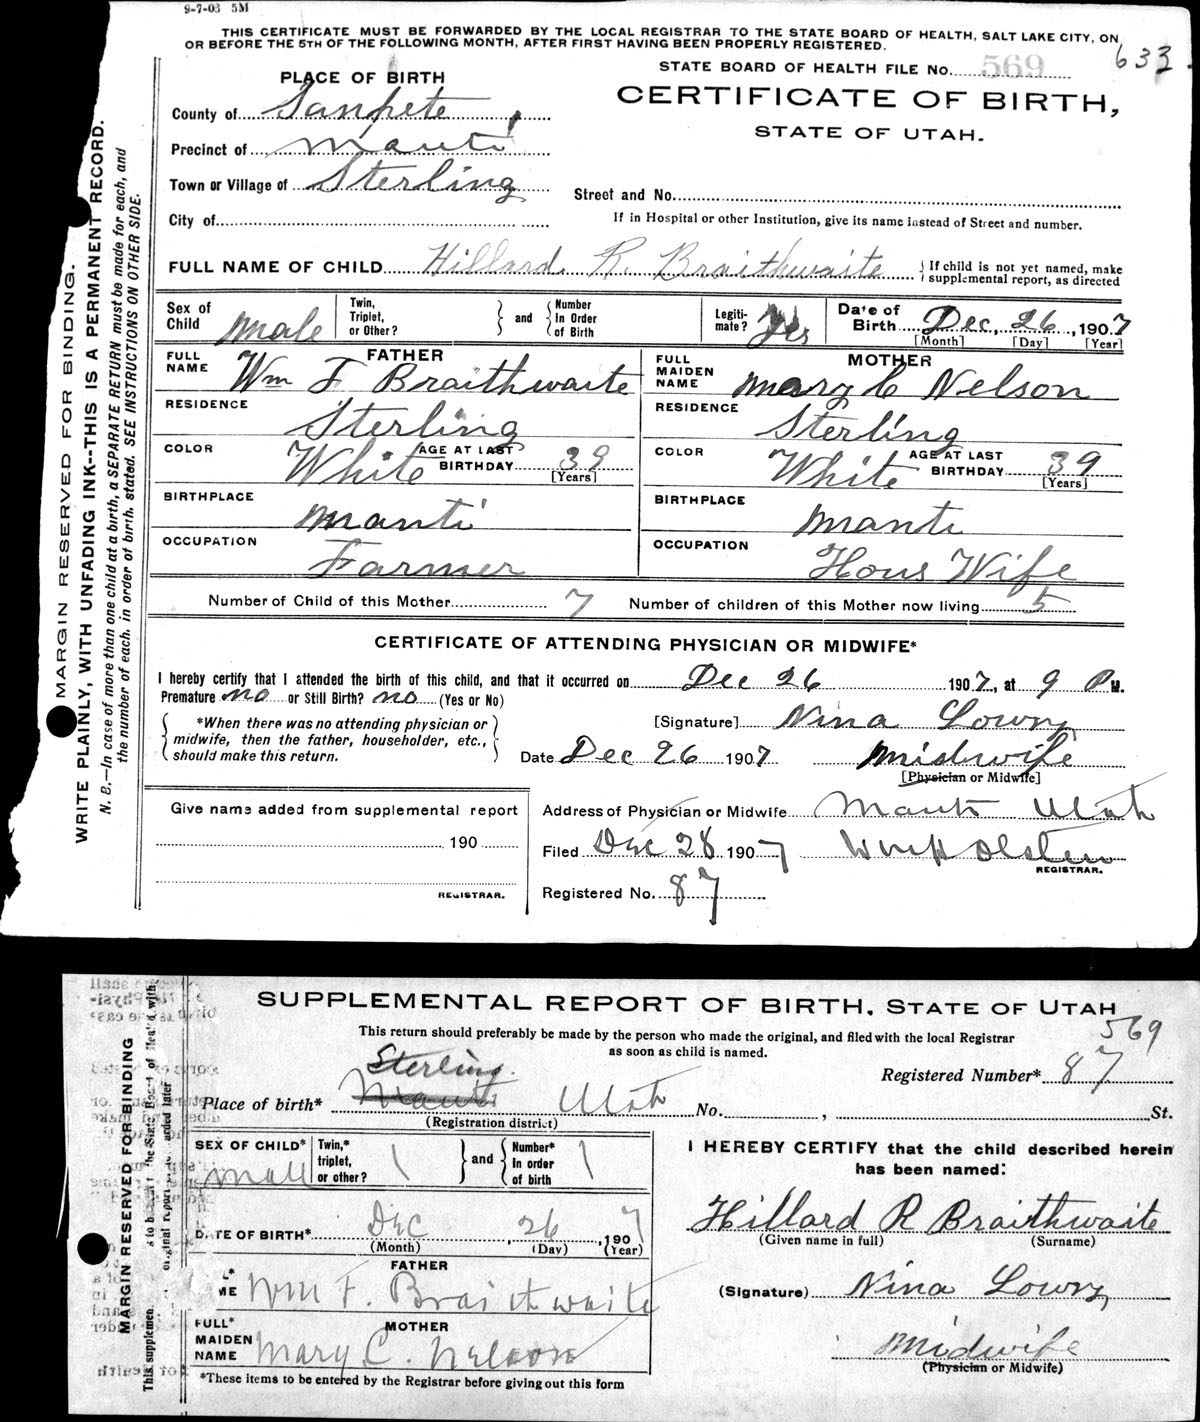 9-7-03 5M
THIS CERTIFICATE MUST BE FORWARDED BY THE LOCAL REGISTRAR TO THE STATE BOARD OF HEALTH, SALT LAKE CITY, ON
OR BEFORE THE 5TH OF THE FOLLOWING MONTH, AFTER FIRST HAVING BEEN PROPERLY REGISTERED.
633
STATE BOARD OF HEALTH FILE No. 569
CERTIFICATE OF BIRTH,
STATE OF UTAH.
PLACE OF BIRTH
County of Sanpete
Precinct of Manti
Town or Village of Sterling
City of
Street and No.
If in Hospital or other Institution, give its name instead of Street and number.
FULL NAME OF CHILD Hillard R. Braithwaite
If child is not yet named, make
supplemental report, as directed
Sex of Child Male
Twin, Triplet, or Other?
and
Number In Order of Birth
Legiti-mate? Yes
Date of Birth Dec, 26, 1907
[Month] [Day] [Year]
FATHER
FULL NAME Wm F Braithwaite
RESIDENCE Sterling
COLOR White
AGE AT LAST BIRTHDAY 39
[Years]
BIRTHPLACE Manti
OCCUPATION Farmer
MOTHER
FULL MAIDEN NAME Mary C Nelson
RESIDENCE Sterling
COLOR White
AGE AT LAST BIRTHDAY 39
[Years]
BIRTHPLACE Manti
OCCUPATION Hous Wife
Number of Child of this Mother 7 Number of children of this Mother now living 5
CERTIFICATE OF ATTENDING PHYSICIAN OR MIDWIFE*
I hereby certify that I attended the birth of this child, and that it occurred on Dec 26 1907, at 9 P M.
Premature no or Still Birth? no (Yes or No)
*When there was no attending physician or
midwife, then the father, householder, etc.,
should make this return.
[Signature] Nina Lowry
Date Dec 26 1907 Midwife
[Physician or Midwife]
Give name added from supplemental report
190
REGISTRAR.
Address of Physician or Midwife Manti Utah
Filed Dec 28 1907 Wm H Olsten
REGISTRAR.
Registered No. 87
MARGIN RESERVED FOR BINDING.
WRITE PLAINLY, WITH UNFADING INK--THIS IS A PERMANENT RECORD.
N. B.—In case of more than one child at a birth, a SEPARATE RETURN must be made for each, and
the number of each, in order of birth, stated. SEE INSTRUCTIONS ON OTHER SIDE.
SUPPLEMENTAL REPORT OF BIRTH, STATE OF UTAH
This return should preferably be made by the person who made the original, and filed with the local Registrar
as soon as child is named.
569
Registered Number* 87
Sterling
Place of birth* Manti Utah No. , St.
(Registration district)
SEX OF CHILD* Male
Twin,* triplet, or other? 1
and
Number* In order of birth 1
DATE OF BIRTH* Dec, 26, 1907
(Month) (Day) (Year)
FATHER
Wm F. Braithwaite
FULL* MAIDEN NAME
MOTHER
Mary C. Nelson
*These items to be entered by the Registrar before giving out this form
I HEREBY CERTIFY that the child described herein
has been named:
Hillard R Braithwaite
(Given name in full) (Surname)
(Signature) Nina Lowry
Midwife
(Physician or Midwife)
MARGIN RESERVED FOR BINDING